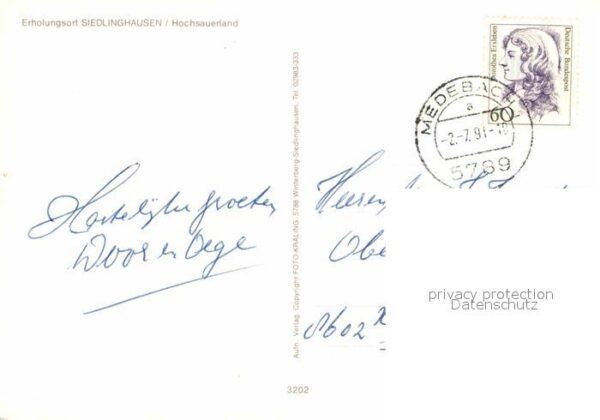 Erholungsort SIEDLINGHAUSEN / Hochsauerland
Deutsche Bundespost
Erxleben
60
MEDEBACH
a
-2.-7.91-18
5789
Hartelijke groeten
Door en
Aufn. Verlag Copyright FOTO-KRALING, 5788 Winterberg-Siedlinghausen, Tel. 02983-333
Heeren
Obe
8602
privacy protection
Datenschutz
3202